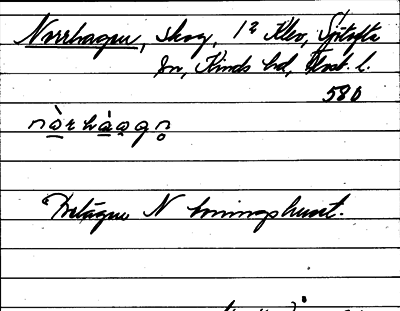 Norrhagen, skog, 1² Klev, Sjötofta
sn, Kinds hd, Älvsb. l.
580
nòrhàagn̥
Beläget N boningshuset.